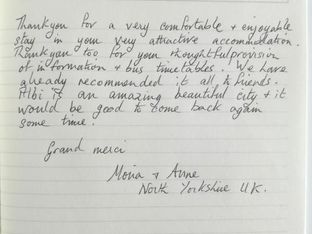 Thankyou for a very comfortable + enjoyable
stay in your very attractive accommodation.
Thankyou too for your thoughtful provision
of information + bus timetables. We have
already recommended it all to friends.
Albi is an amazing beautiful city + it
would be good to come back again
some time.
Grand merci
Moira + Anne
North Yorkshire UK.